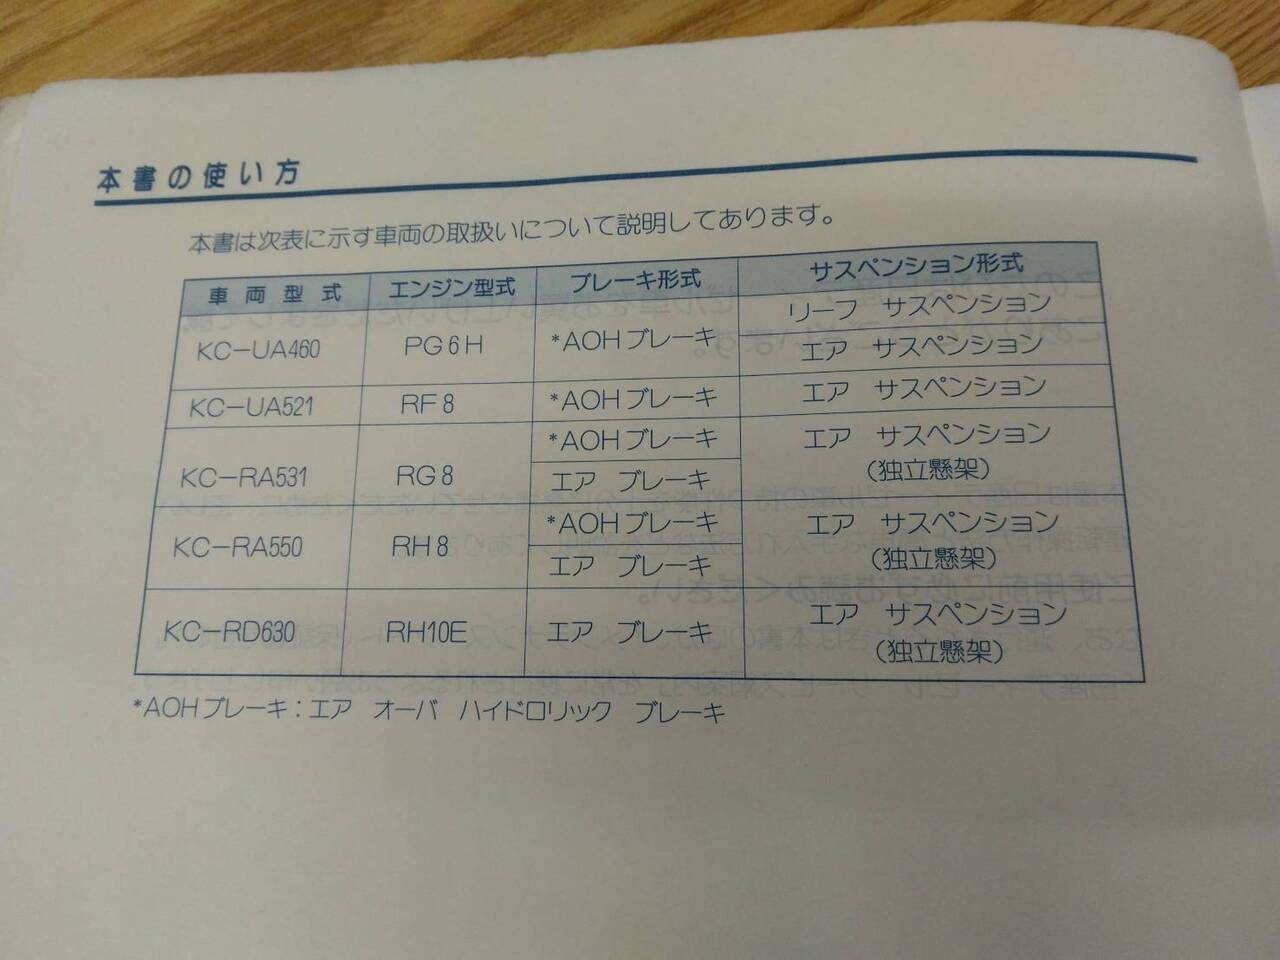 本書の使い方
本書は次表に示す車両の取扱いについて説明してあります。
車両型式 エンジン型式 ブレーキ形式 サスペンション形式
KC-UA460 PG6H *AOHブレーキ リーフ サスペンション
エア サスペンション
KC-UA521 RF8 *AOHブレーキ エア サスペンション
KC-RA531 RG8 *AOHブレーキ エア サスペンション
エア ブレーキ (独立懸架)
KC-RA550 RH8 *AOHブレーキ エア サスペンション
エア ブレーキ (独立懸架)
KC-RD630 RH10E エア ブレーキ エア サスペンション
(独立懸架)
*AOHブレーキ:エア オーバ ハイドロリック ブレーキ